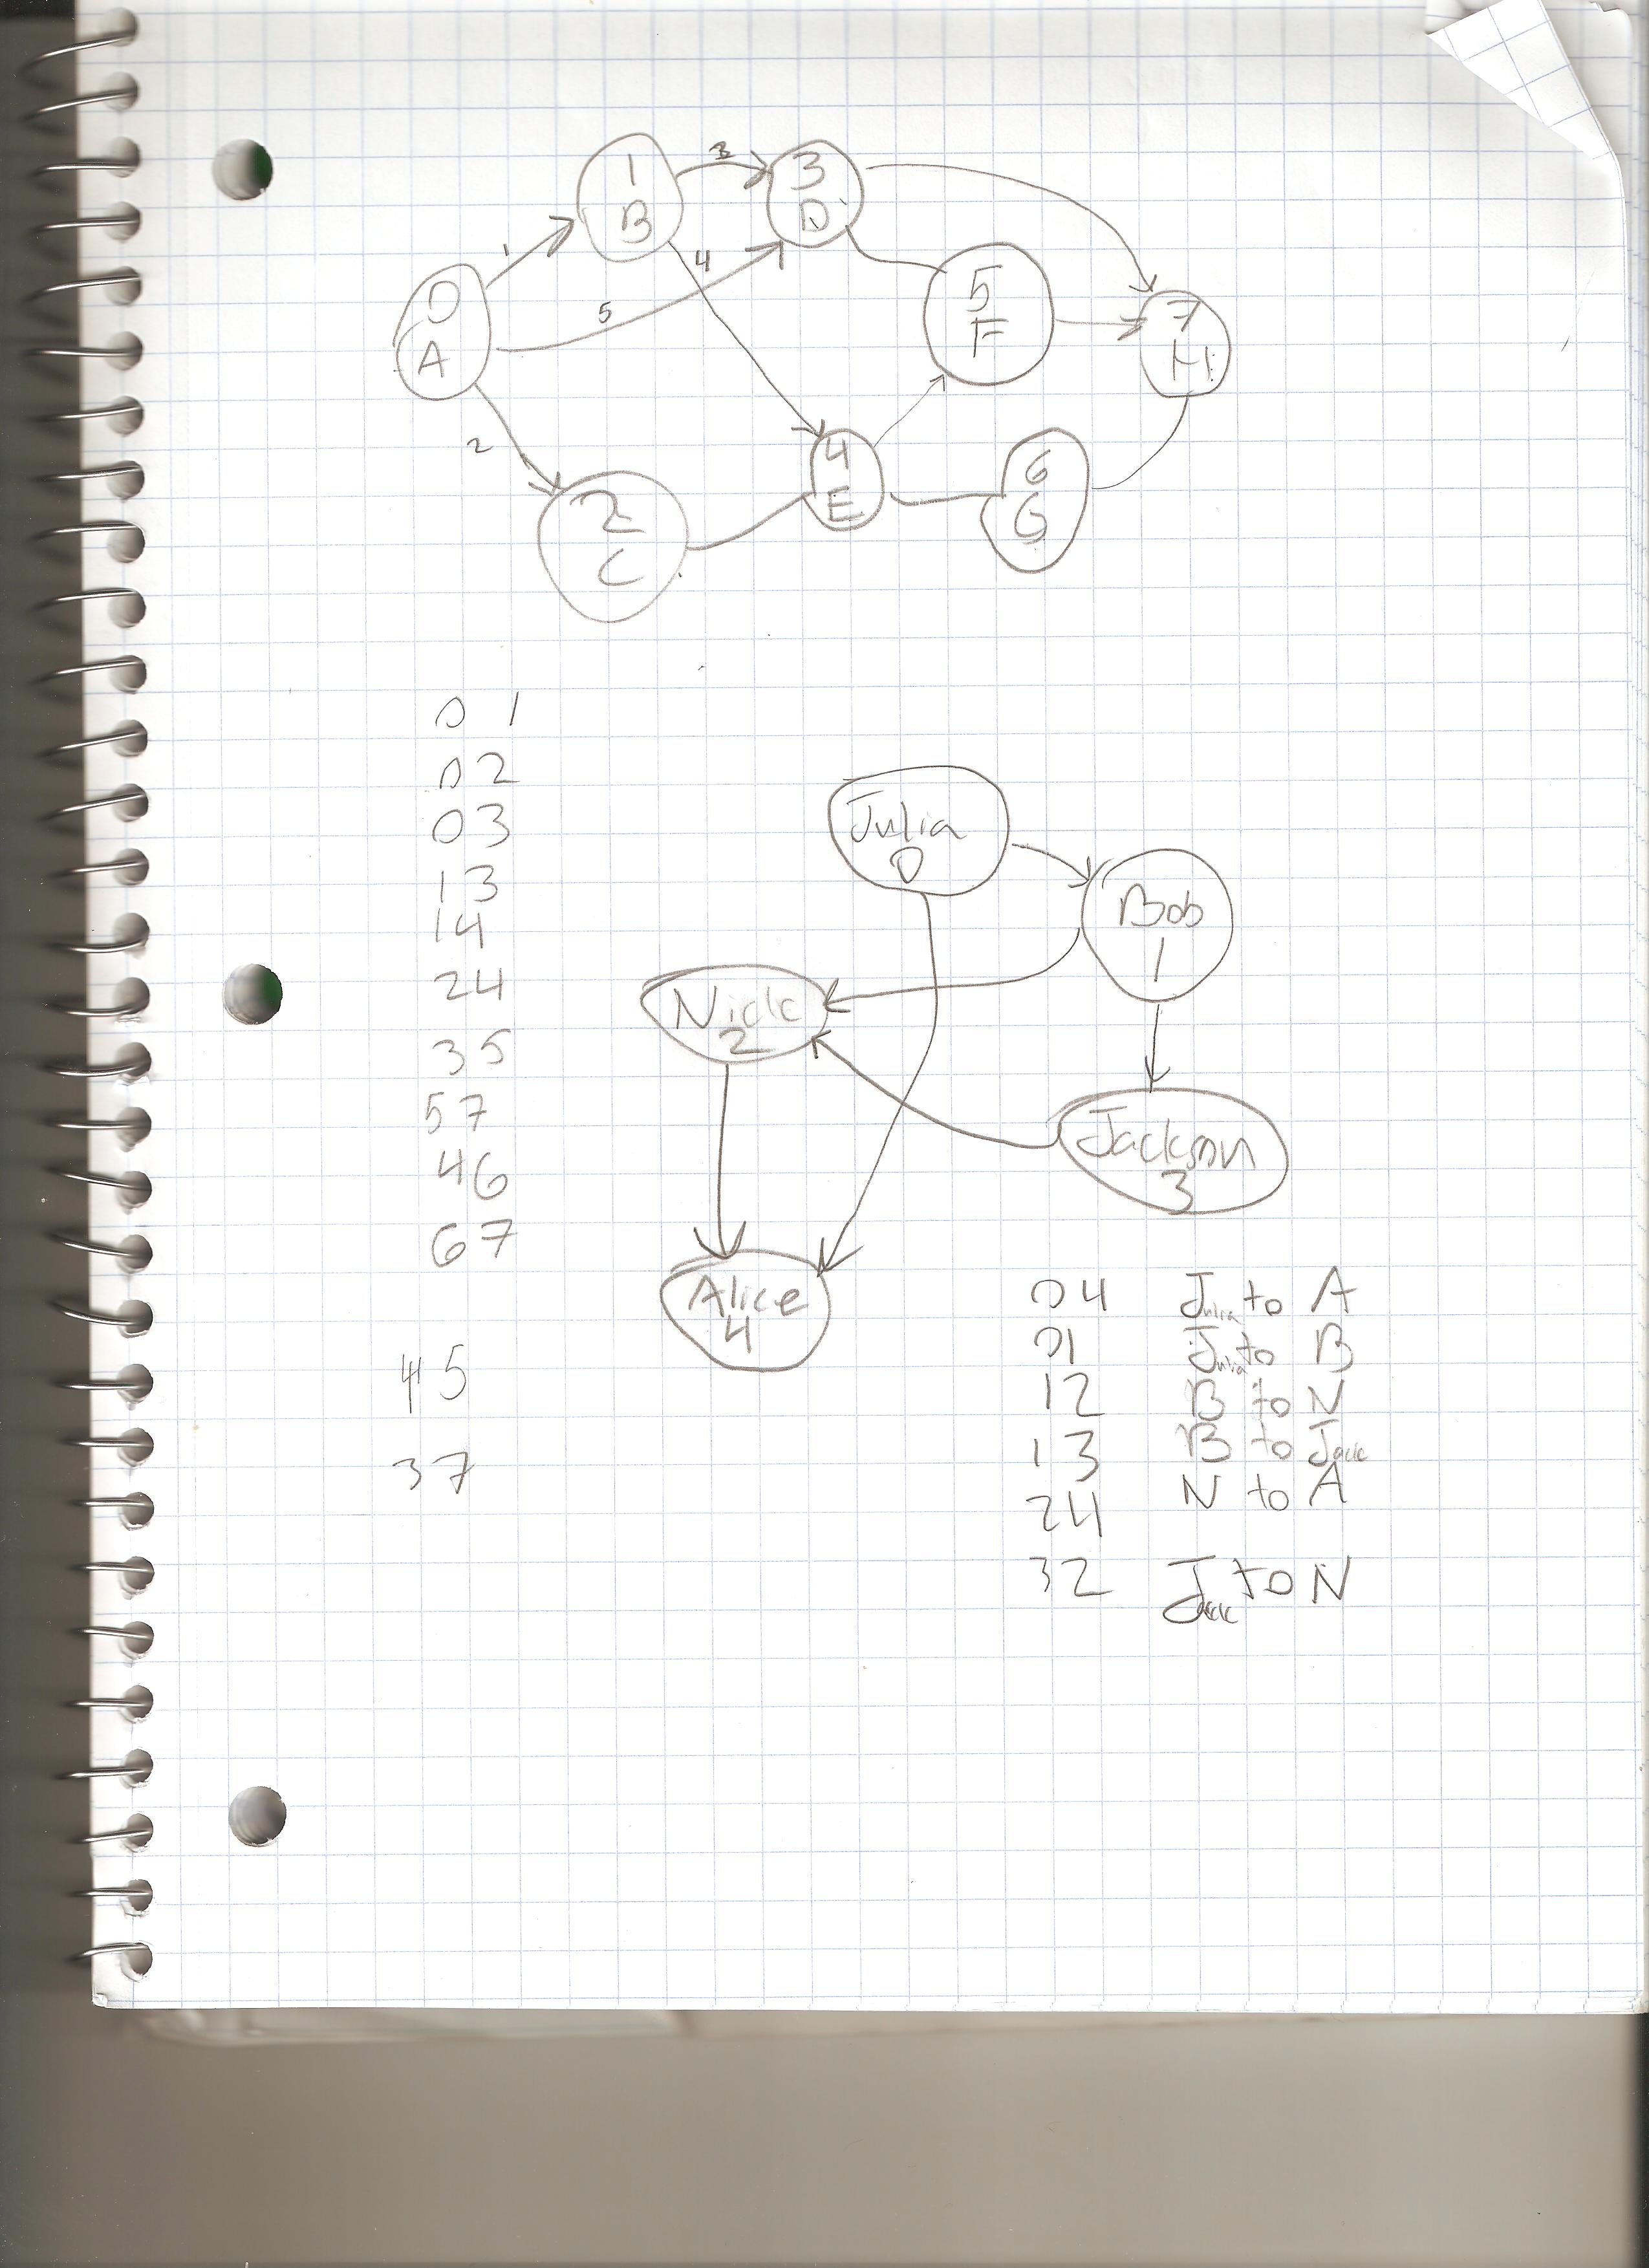 1 3 3
B D
1 4
0 5 5
A F 7
H
2 4 6
2 E G
C
0 1
0 2
03
13
14
24
35
57
46
67
45
37
Julia
0
Bob
1
Nick
2
Jackson
3
Alice
4
04 Julia to A
01 Julia to B
12 B to N
13 B to Jack
24 N to A
32 Jack to N